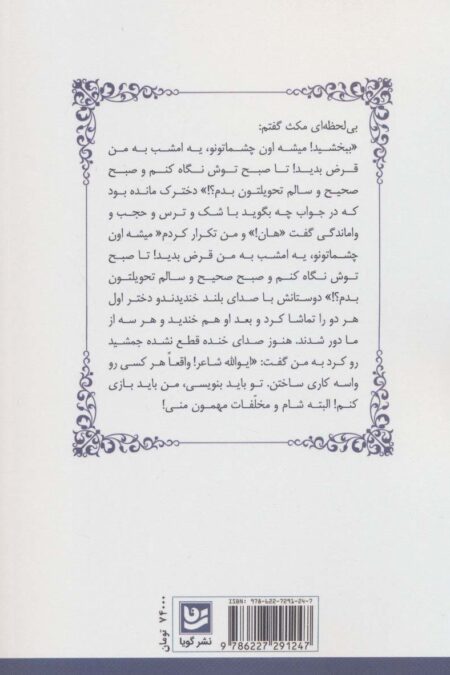 بی‌لحظه‌ای مکث گفتم:
«ببخشید! میشه اون چشماتونو، یه امشب به من
قرض بدید! تا صبح توش نگاه کنم و صبح
صحیح و سالم تحویلتون بدم؟!» دخترک مانده بود
که در جواب چه بگوید با شک و ترس و حجب و
واماندگی گفت «هان!» و من تکرار کردم« میشه اون
چشماتونو، یه امشب به من قرض بدید! تا صبح
توش نگاه کنم و صبح صحیح و سالم تحویلتون
بدم؟!» دوستانش با صدای بلند خندیدندو دختر اول
هر دو را تماشا کرد و بعد او هم خندید و هر سه از
ما دور شدند. هنوز صدای خنده قطع نشده جمشید
رو کرد به من گفت: «ایوالله شاعر! واقعاً هر کسی رو
واسه کاری ساختن. تو باید بنویسی، من باید بازی
کنم! البته شام و مخلّفات مهمون منی!
ISBN: 978-622-7291-24-7
9 786227 291247
نشر گویا
۷۴۰۰۰ تومان